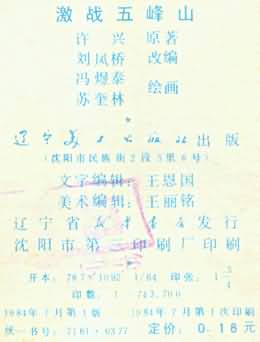 激战五峰山
许兴 原著
刘凤桥 改编
冯煜泰
苏奎林 绘画
辽宁美术出版社出版
(沈阳市民族街2段5里6号)
文字编辑：王恩国
美术编辑：王丽铭
辽宁省新华书店发行
沈阳市第二印刷厂印刷
开本：787×1092 1/64 印张：1 3/4
印数：1—743,700
1984年7月第1版 1984年7月第1次印刷
统一书号：7161·0377 定价：0.18元